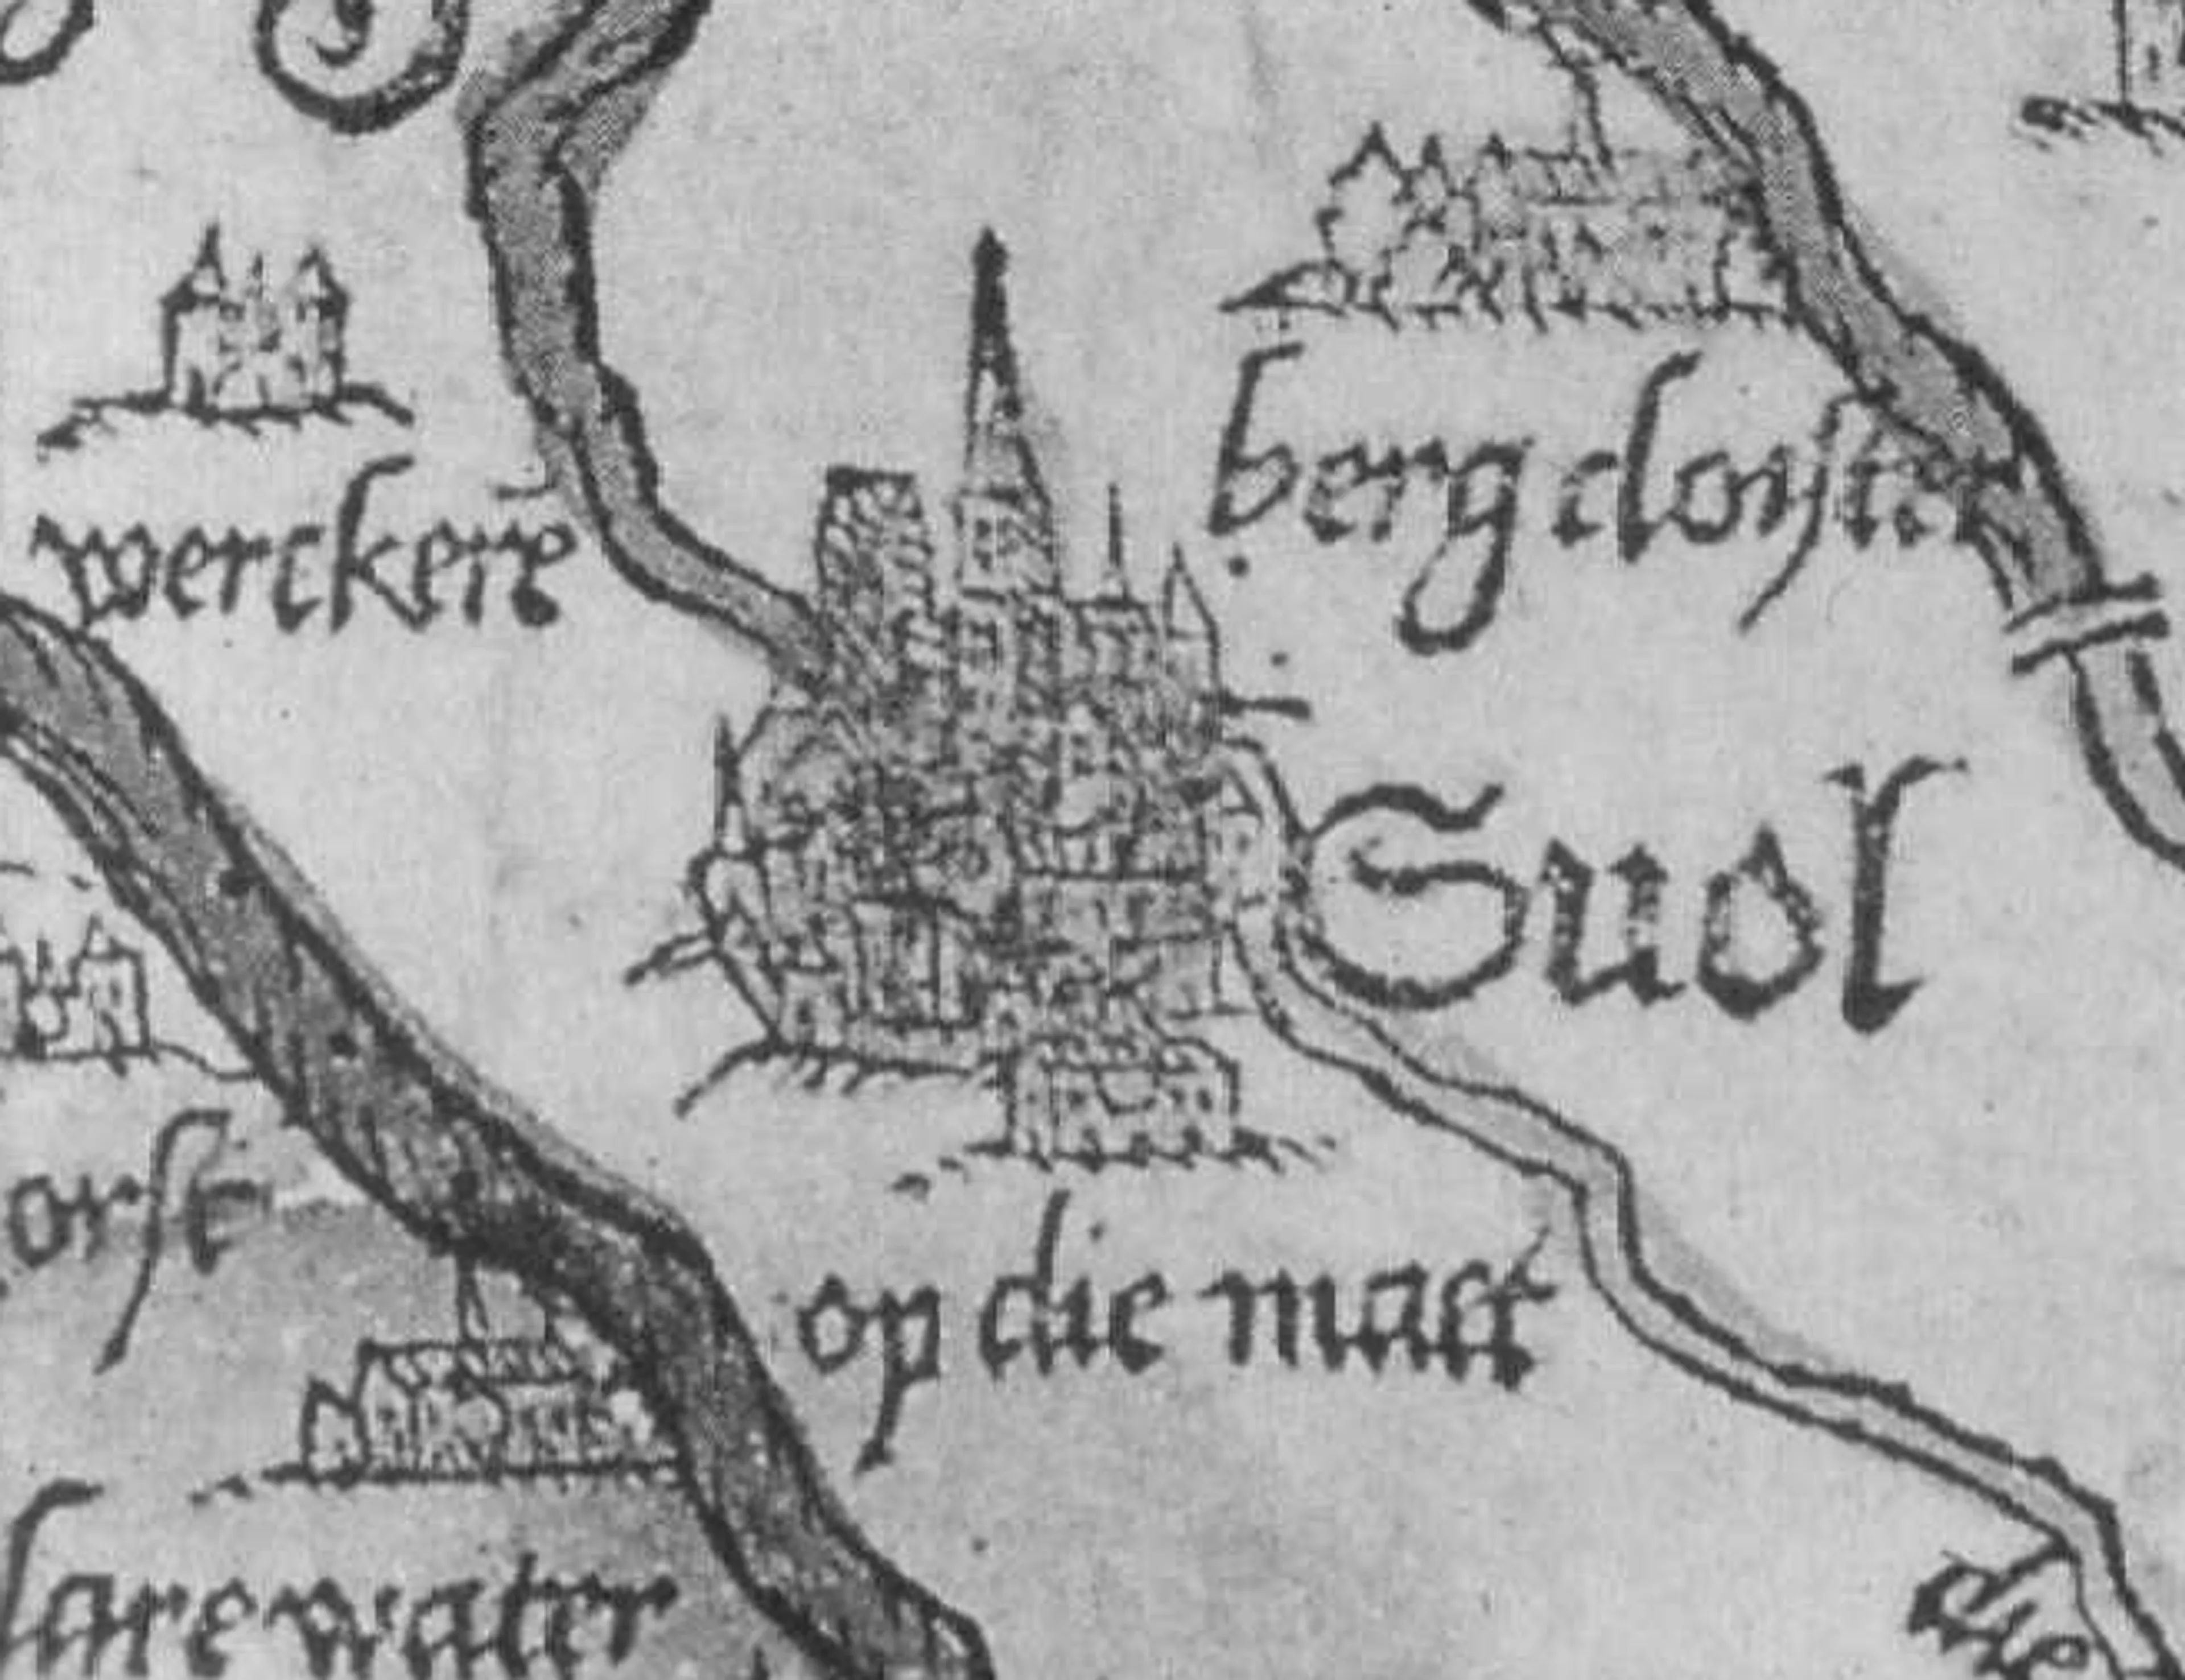 werckerē
berg cloyster
Suol
orst
op die matt
clarewater
die